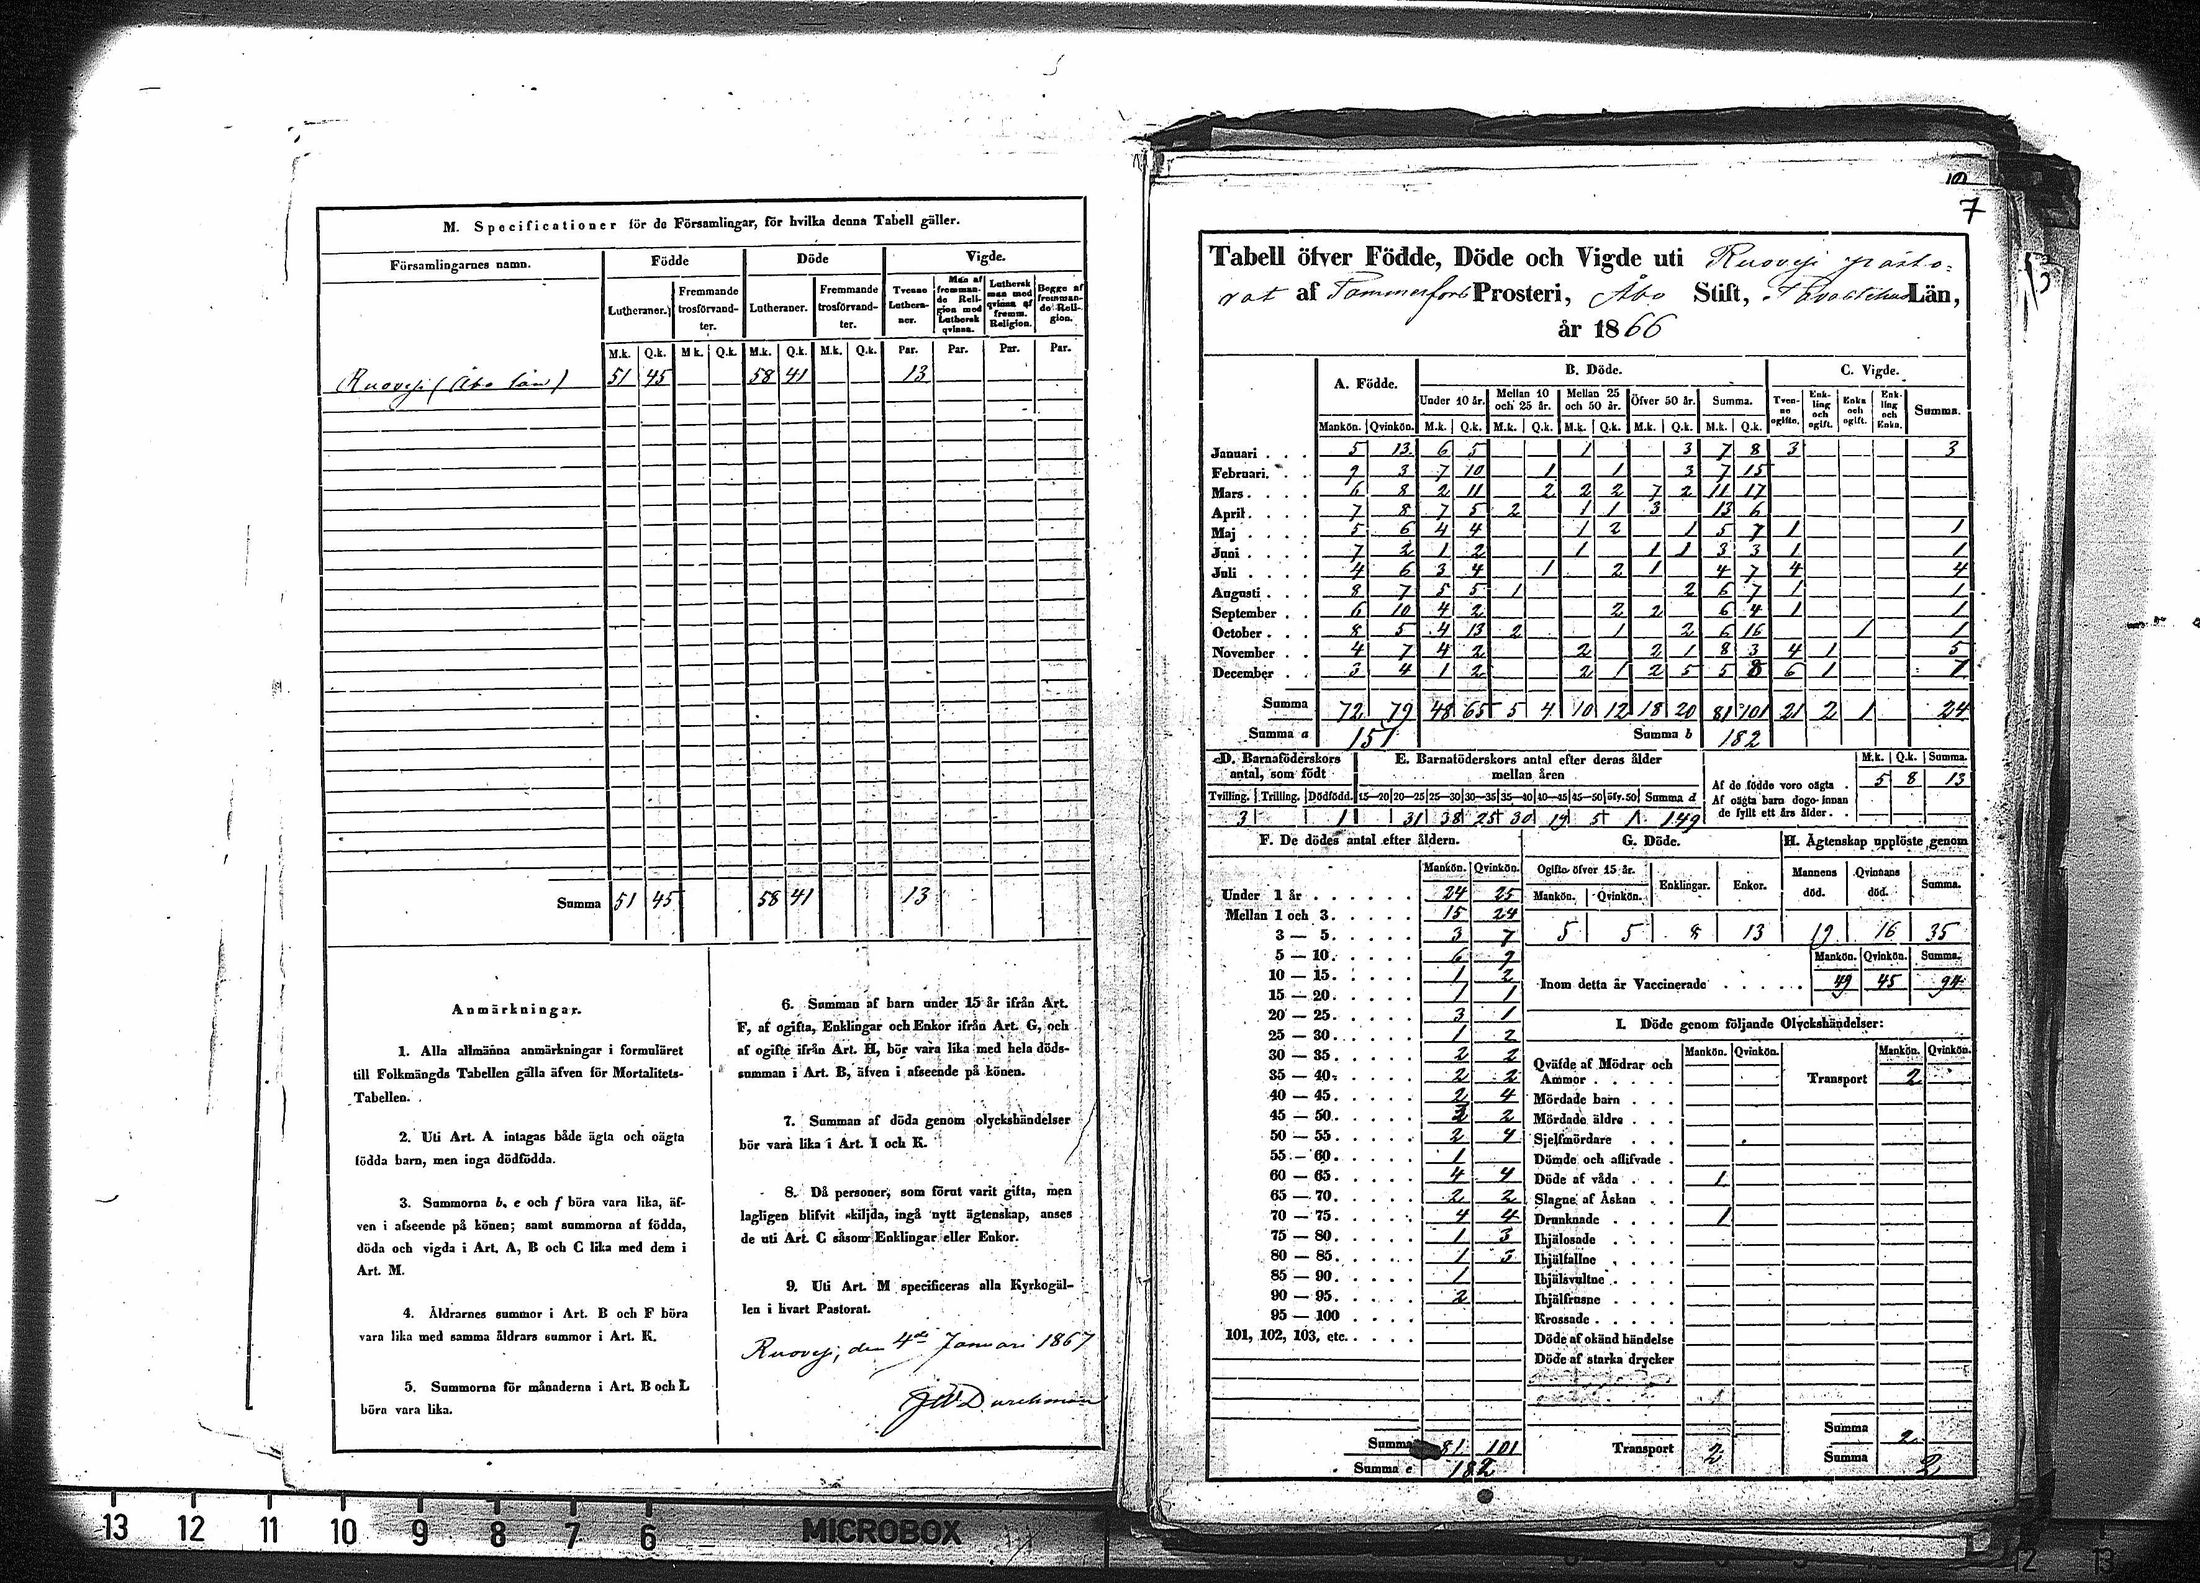 M. Specificationer för de Församlingar, för hvilka denna Tabell gäller.
Församlingarnes namn. Födde Döde Vigde.
Lutheraner. Fremmande trosförvandter. Lutheraner. Fremmande trosförvandter. Tvenne Lutheraner. Man af fremmande Religion med Luthersk qvinna. Luthersk man med qvinna af fremm. Religion. Begge af fremmande Religion.
M.k. Q.k. M.k. Q.k. M.k. Q.k. M.k. Q.k. Par. Par. Par. Par.
Ruovesi (Åbo län) 51 45 58 41 13
Summa 51 45 58 41 13
Anmärkningar.
1. Alla allmänna anmärkningar i formuläret
till Folkmängds Tabellen gälla äfven för Mortalitets-
Tabellen.
2. Uti Art. A intagas både ägta och oägta
födda barn, men inga dödfödda.
3. Summorna b, e och f böra vara lika, äf-
ven i afseende på könen; samt summorna af födda,
döda och vigda i Art. A, B och C lika med dem i
Art. M.
4. Åldrarnes summor i Art. B och F böra
vara lika med samma åldrars summor i Art. K.
5. Summorna för månaderna i Art. B och L
böra vara lika.
6. Summan af barn under 15 år ifrån Art.
F, af ogifta, Enklingar och Enkor ifrån Art. G, och
af ogifte ifrån Art. H, bör vara lika med hela döds-
summan i Art. B, äfven i afseende på könen.
7. Summan af döda genom olyckshändelser
bör vara lika i Art. I och K.
8. Då personer, som förut varit gifta, men
lagligen blifvit skiljda, ingå nytt ägtenskap, anses
de uti Art. C såsom Enklingar eller Enkor.
9. Uti Art. M specificeras alla Kyrkogäl-
len i hvart Pastorat.
Ruovesi, den 4de Januari 1867
Durchman
13 12 11 10 9 8 7 6 MICROBOX
10
7
Tabell öfver Födde, Döde och Vigde uti Ruovesi pasto-
rat af Tammerfors Prosteri, Åbo Stift, Tavastehus Län,
år 1866
A. Födde. B. Döde. C. Vigde.
Under 10 år. Mellan 10 och 25 år. Mellan 25 och 50 år. Öfver 50 år. Summa. Tvenne ogifte. Enkling och ogift. Enka och ogift. Enkling och Enka. Summa.
Mankön. Qvinkön. M.k. Q.k. M.k. Q.k. M.k. Q.k. M.k. Q.k. M.k. Q.k.
Januari 5 13 6 5 1 3 7 8 3 3
Februari 9 3 7 10 1 1 3 7 15
Mars 6 8 2 11 2 2 2 7 2 11 17
April 7 8 7 5 2 1 1 3 13 6
Maj 5 6 4 4 1 2 1 5 7 1 1
Juni 7 2 1 2 1 1 1 3 3 1 1
Juli 4 6 3 4 1 2 1 4 7 4 4
Augusti 8 7 5 5 1 2 6 7 1 1
September 6 10 4 2 2 2 6 4 1 1
October 8 5 4 13 2 1 2 6 16 1 1
November 4 7 4 2 2 2 1 8 3 4 1 5
December 3 4 1 2 2 1 2 5 5 8 6 1 7
Summa 72 79 48 65 5 4 10 12 18 20 81 101 21 2 1 24
Summa a 151 Summa b 182
D. Barnaföderskors antal, som födt
Tvilling. Trilling. Dödfödd.
3 1
E. Barnaföderskors antal efter deras ålder mellan åren
15—20 20—25 25—30 30—35 35—40 40—45 45—50 öfv. 50 Summa d
31 38 25 30 19 5 1 149
M.k. Q.k. Summa.
Af de födde voro oägta 5 8 13
Af oägta barn dogo innan
de fyllt ett års ålder.
F. De dödes antal efter åldern.
Mankön. Qvinkön.
Under 1 år 24 25
Mellan 1 och 3 15 24
3 — 5 3 7
5 — 10 6 9
10 — 15 1 2
15 — 20 1 1
20 — 25 3 1
25 — 30 1 2
30 — 35 2 2
35 — 40 2 2
40 — 45 2 4
45 — 50 3 2
50 — 55 2 4
55 — 60 1
60 — 65 4 4
65 — 70 2 2
70 — 75 4 4
75 — 80 1 3
80 — 85 1 3
85 — 90 1
90 — 95 2
95 — 100
101, 102, 103, etc.
Summa 81 101
Summa e 182
G. Döde.
Ogifte öfver 15 år. Enklingar. Enkor.
Mankön. Qvinkön.
5 5 8 13
H. Ägtenskap upplöste genom
Mannens död. Qvinnans död. Summa.
19 16 35
Mankön. Qvinkön. Summa.
Inom detta år Vaccinerade 49 45 94
I. Döde genom följande Olyckshändelser:
Mankön. Qvinkön. Mankön. Qvinkön.
Qväfde af Mödrar och
Ammor Transport 2
Mördade barn
Mördade äldre
Sjelfmördare
Dömde och aflifvade
Döde af våda 1
Slagne af Åskan
Drunknade 1
Ihjälosade
Ihjälfallne
Ihjälsvultne
Ihjälfrusne
Krossade
Döde af okänd händelse
Döde af starka drycker
Summa 2
Transport 2 Summa 2
12 13